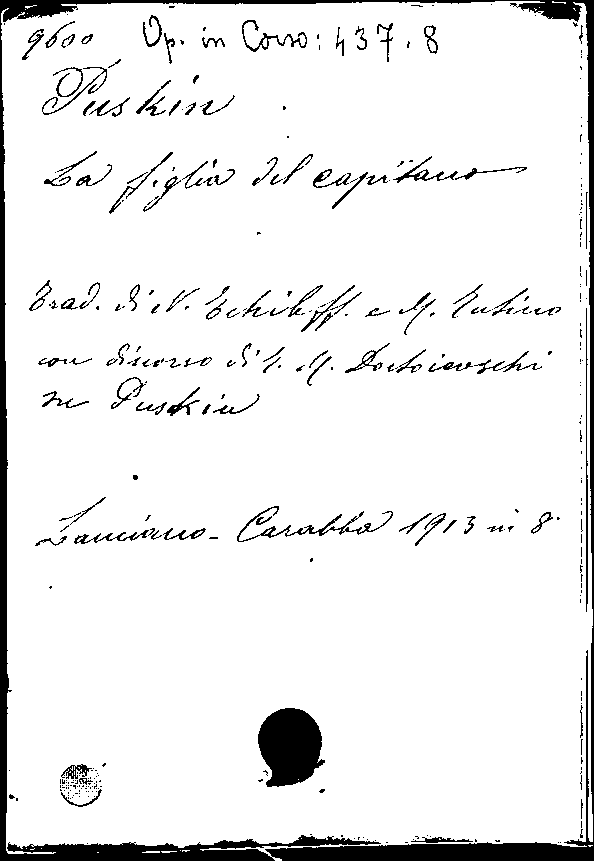 9600 Op. in Corso: 437.8
Puskin
La figlia del capitano
Trad. di N. Tchileff. e M. Rutino
con discorso di T. M. Dostoievschi
su Puskin
Lanciano - Carabba 1913 in 8°